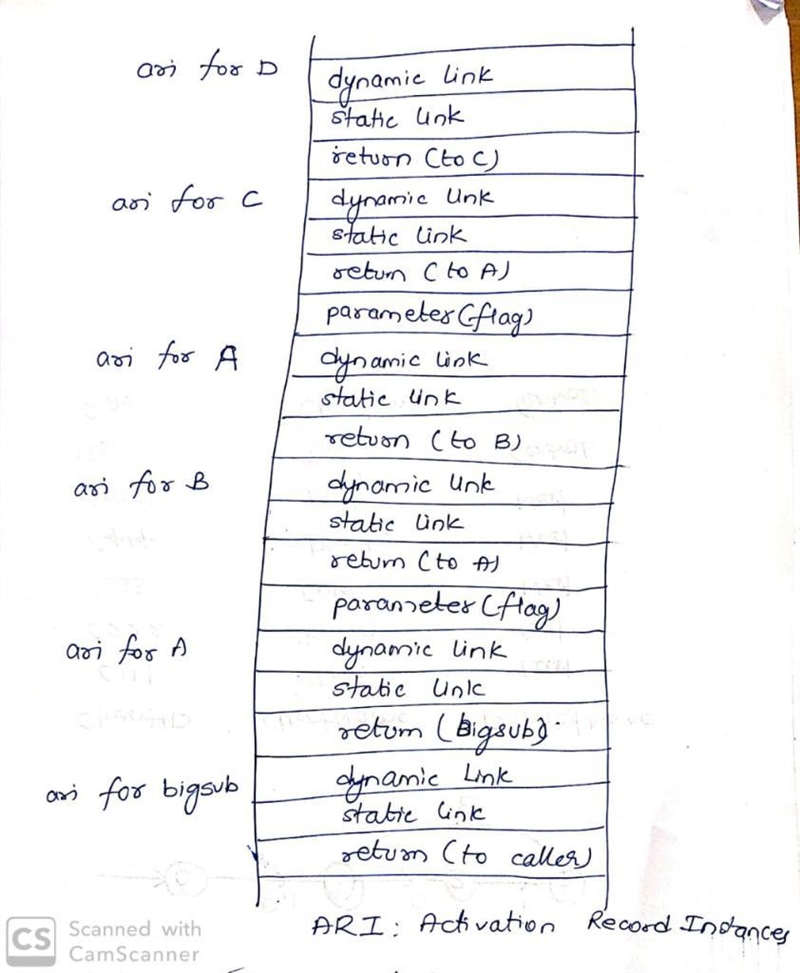 ari for D
dynamic link
static link
return (to C)
ari for C
dynamic link
static link
return (to A)
parameter (flag)
ari for A
dynamic link
static link
return (to B)
ari for B
dynamic link
static link
return (to A)
parameter (flag)
ari for A
dynamic link
static link
return (bigsub)
ari for bigsub
dynamic Link
static link
return (to caller)
ARI: Activation Record Instances
CS Scanned with
CamScanner